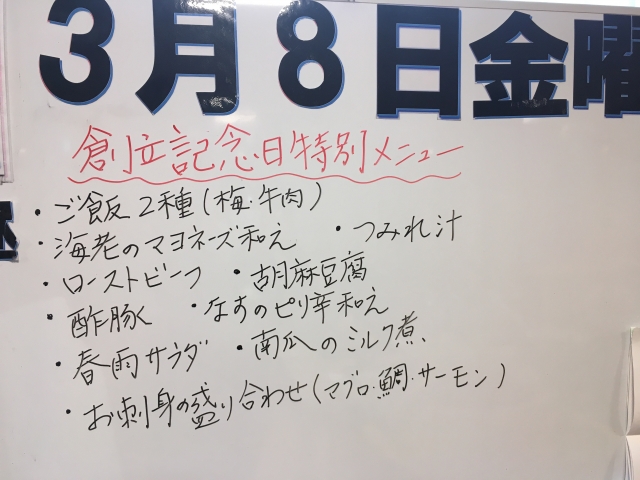 3月8日金曜
創立記念日特別メニュー
・ご飯2種(梅・牛肉)
・海老のマヨネーズ和え ・つみれ汁
・ローストビーフ ・胡麻豆腐
・酢豚 ・なすのピリ辛和え
・春雨サラダ ・南瓜のミルク煮
・お刺身の盛り合わせ(マグロ・鯛・サーモン)